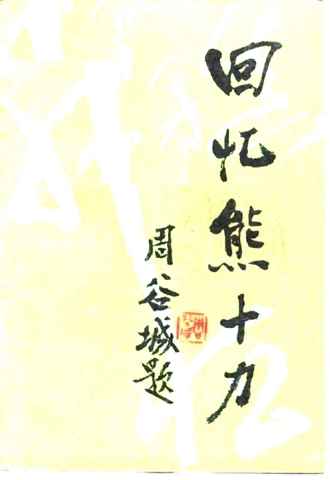 回忆熊十力
周谷城题